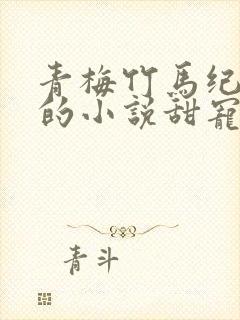 青梅竹馬纪
的小説甜寵
青斗